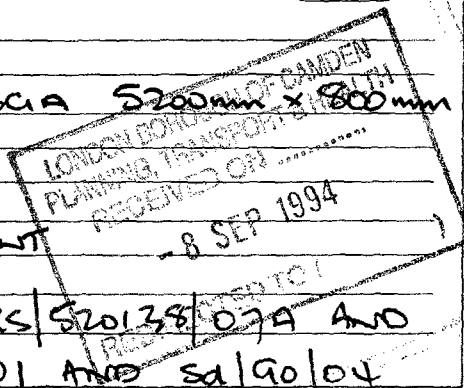 5200mm x 800mm
LONDON BOROUGH OF CAMDEN
PLANNING, TRANSPORT & HEALTH
RECEIVED ON
- 8 SEP 1994
TO
520138/07A AND
AND Sd/90/04